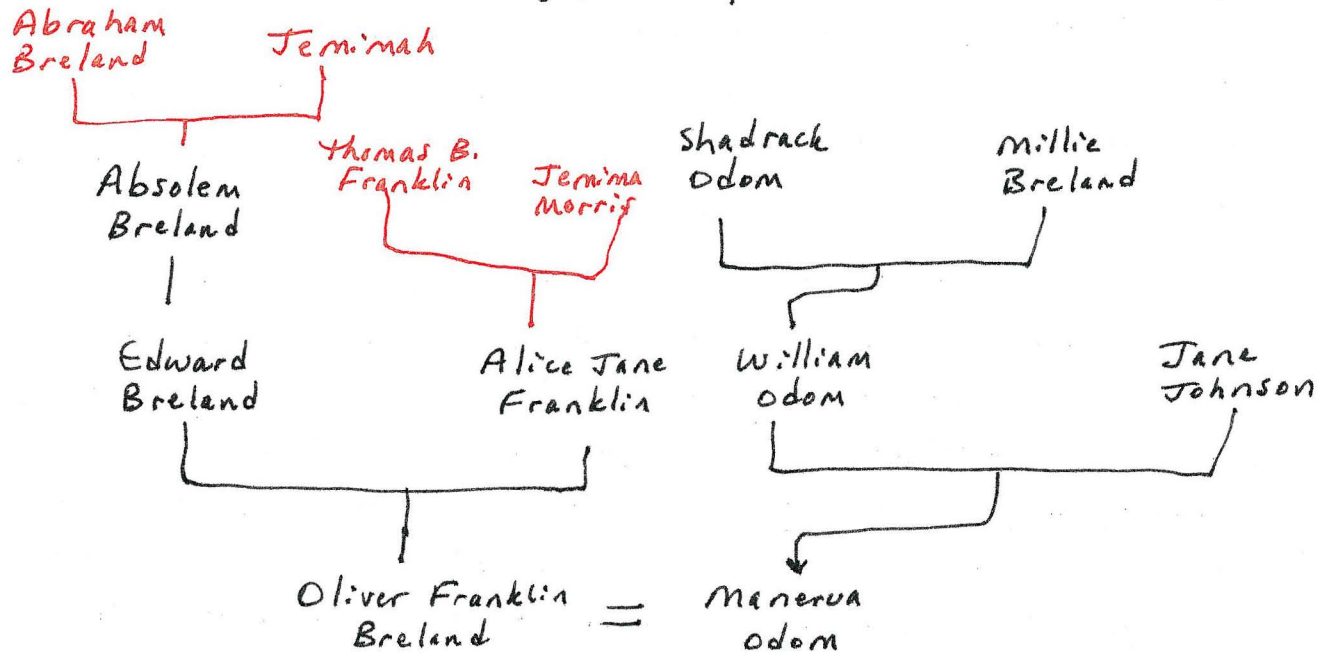 Abraham
Breland
Jemimah
Thomas B.
Franklin
Jemima
Morris
Shadrack
Odom
Millie
Breland
Absolem
Breland
Edward
Breland
Alice Jane
Franklin
William
Odom
Jane
Johnson
Oliver Franklin
Breland
=
Manerva
Odom